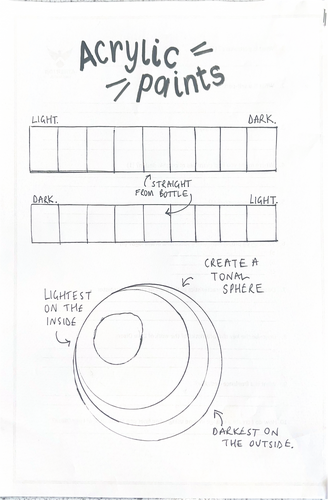 Acrylic
paints
LIGHT.
DARK.
STRAIGHT
FROM BOTTLE
DARK.
LIGHT.
CREATE A
TONAL
SPHERE
LIGHTEST
ON THE
INSIDE
DARKEST ON
THE OUTSIDE.